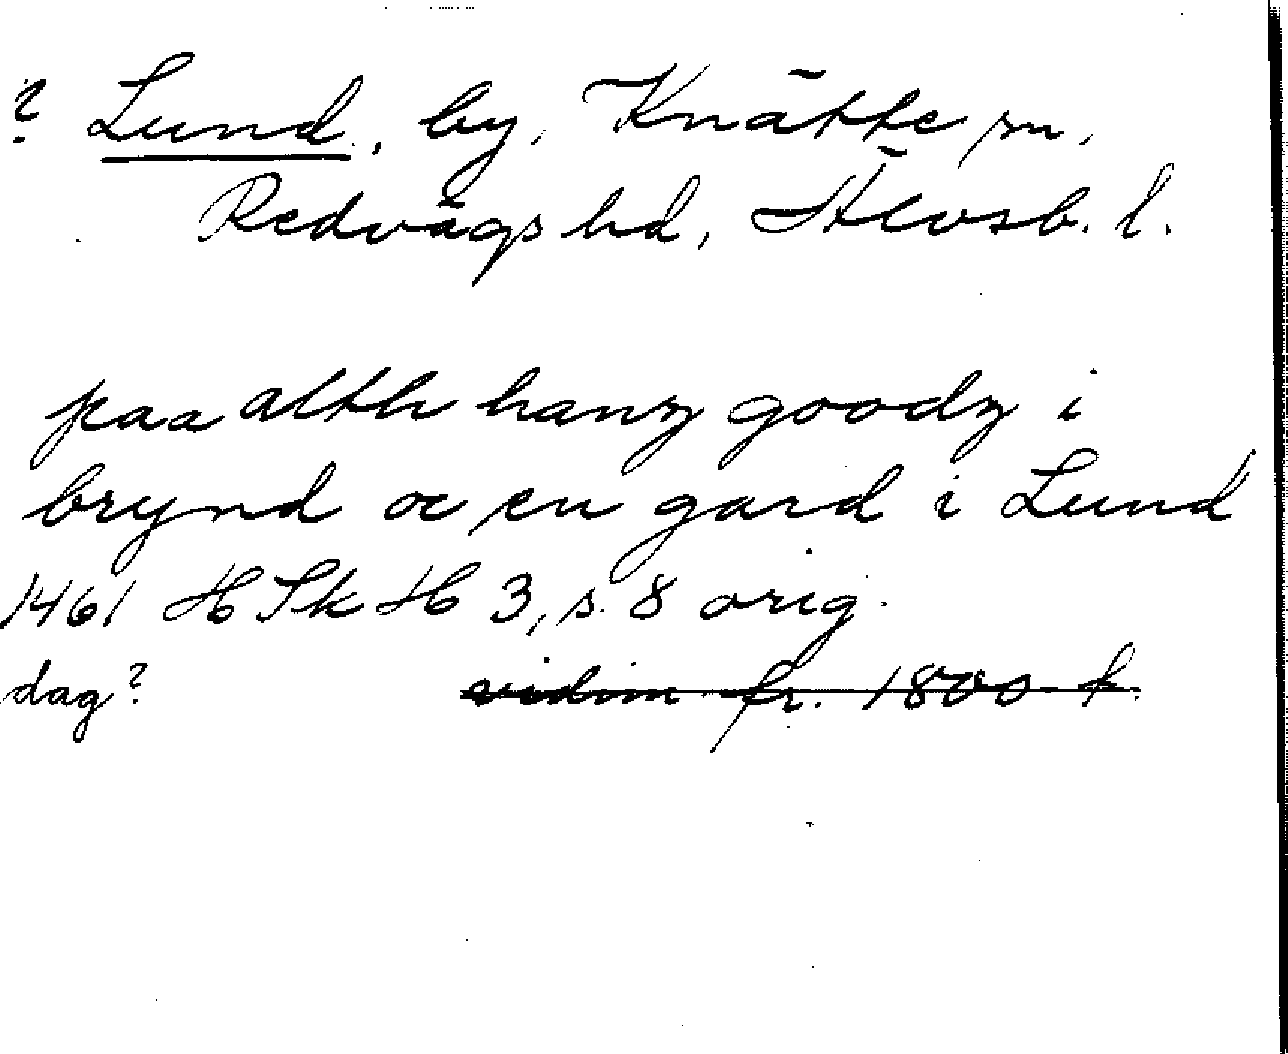 ? Lund, by, Knätte sn,
Redvägs hd, Älvsb. l.
paa alth hanz goodz i
brynd oc en gard i Lund
1461 HSkH 3, s. 8 orig.
dag? vidim fr. 1800-t.